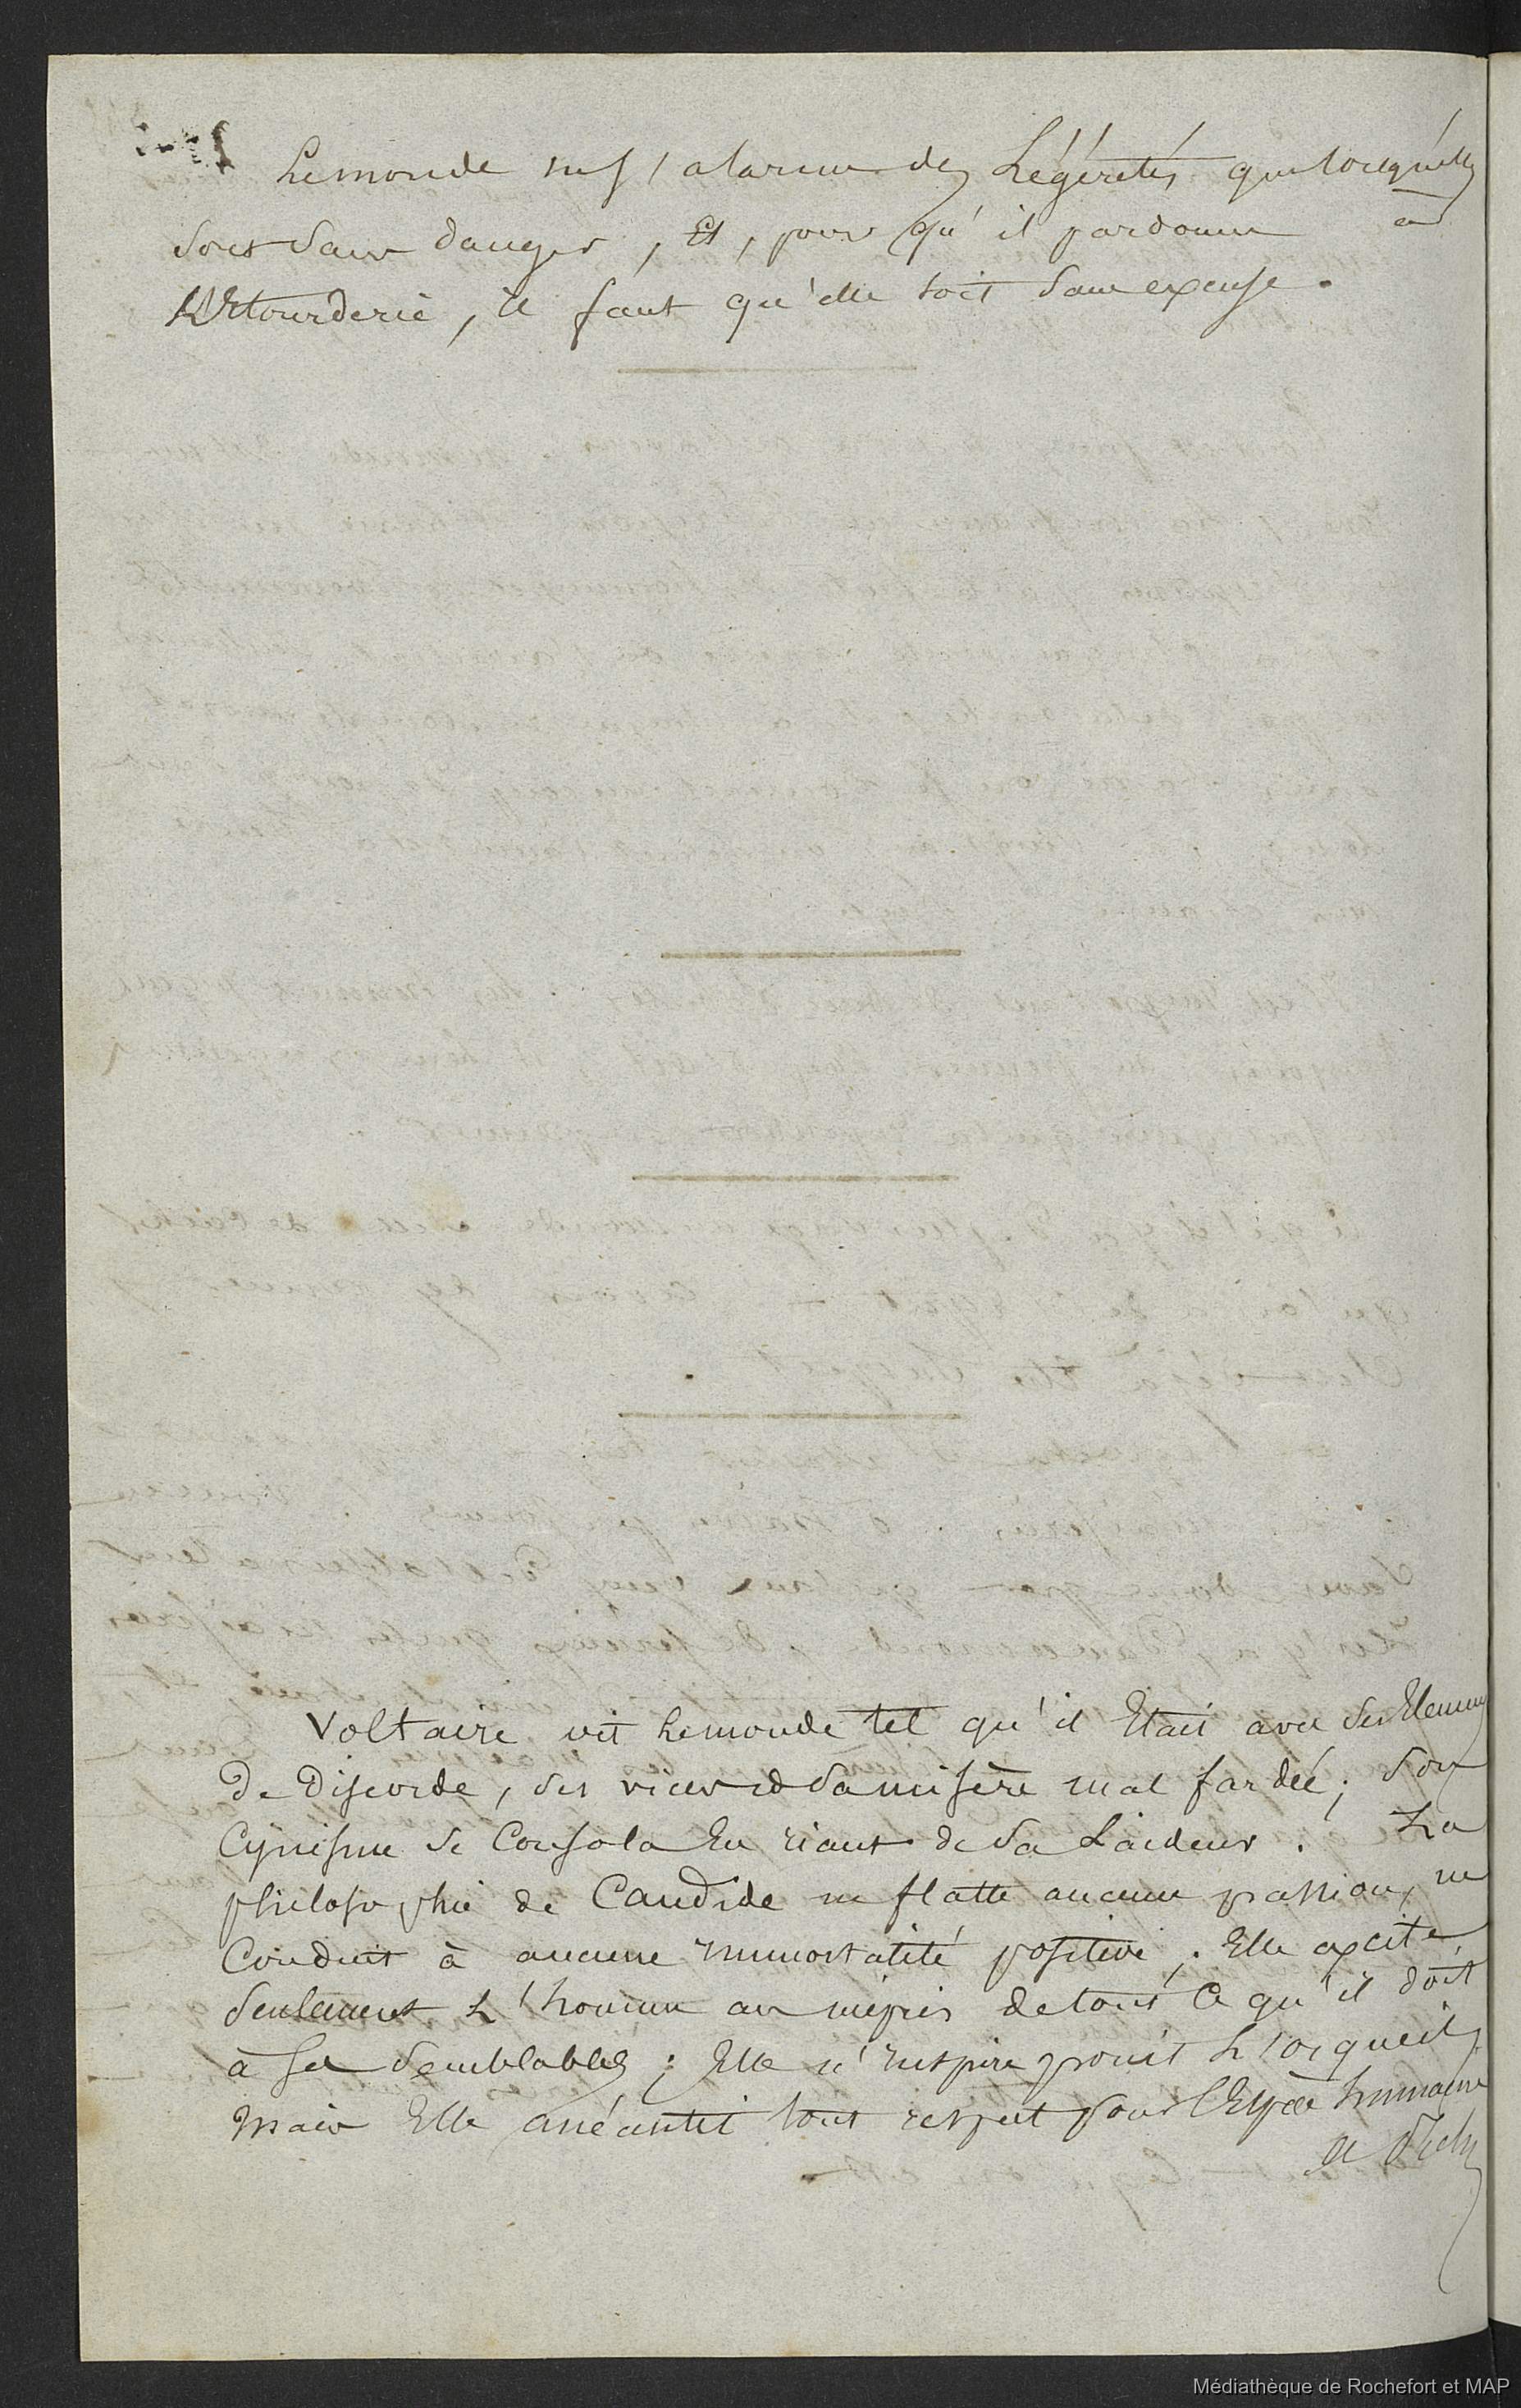 Le monde ne s'alarme des Légéretés que lorsqu'elles
sont sans danger, Et, pour qu'il pardonne a
L'Etourderie, il faut qu'elle soit sans excuse.
Voltaire vit le monde tel qu'il Etait avec ses Elemens
De Discorde, ses vices et sa misère mal fardée; son
Cynisme se Consola En riant de sa Laideur. La
philosophie de Candide ne flatte aucune passion, ne
Conduit à aucune immortalité positive; Elle excite
seulement L'homme au mépris de tout Ce qu'il doit
à ses semblables; Elle n'inspire point L'orgueil,
mais Elle anéantit tout respect pour l'Espèce humaine
Médiathèque de Rochefort et MAP